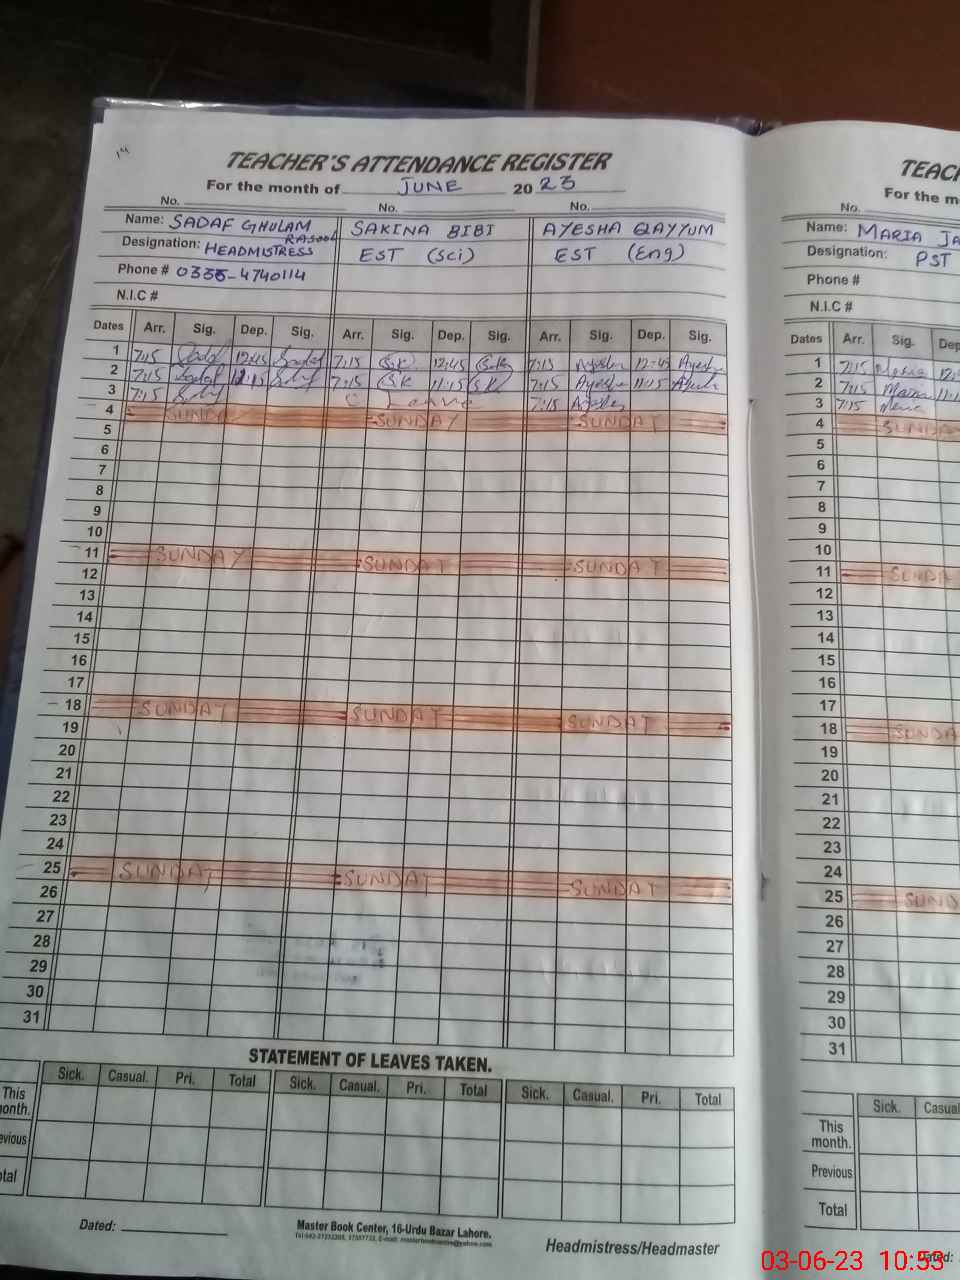 14
TEACHER'S ATTENDANCE REGISTER
For the month of JUNE 2023
No. No. No.
Name: SADAF GHULAM RASOOL SAKINA BIBI AYESHA QAYYUM
Designation: HEADMISTRESS EST (Sci) EST (Eng)
Phone # 0335-4740114
N.I.C #
Dates Arr. Sig. Dep. Sig. Arr. Sig. Dep. Sig. Arr. Sig. Dep. Sig.
1 7:15 Sadaf 12:45 Sadaf 7:15 S.K 12:45 S.K 7:15 Ayesha 12:45 Ayesha
2 7:15 Sadaf 11:15 7:15 S.K 11:15 S.K 7:15 Ayesha 11:15 Ayesha
3 7:15 Leave 7:15 Ayesha
4 SUNDAY SUNDAY SUNDAY
5
6
7
8
9
10
11 SUNDAY SUNDAY SUNDAY
12
13
14
15
16
17
18 SUNDAY SUNDAY SUNDAY
19
20
21
22
23
24
25 SUNDAY SUNDAY SUNDAY
26
27
28
29
30
31
STATEMENT OF LEAVES TAKEN.
Sick. Casual. Pri. Total Sick. Casual. Pri. Total Sick. Casual. Pri. Total
This
onth.
evious
otal
Dated:
Master Book Center, 16-Urdu Bazar Lahore.
Headmistress/Headmaster
TEAC
For the m
No.
Name: MARIA JA
Designation: PST
Phone #
N.I.C #
Dates Arr. Sig. Dep
1 7:15 Maria
2 7:15 Maria
3 7:15 Maria
4 SUNDAY
5
6
7
8
9
10
11 SUNDA
12
13
14
15
16
17
18 SUNDA
19
20
21
22
23
24
25 SUND
26
27
28
29
30
31
Sick. Casual
This
month.
Previous
Total
Dated:
03-06-23 10:53